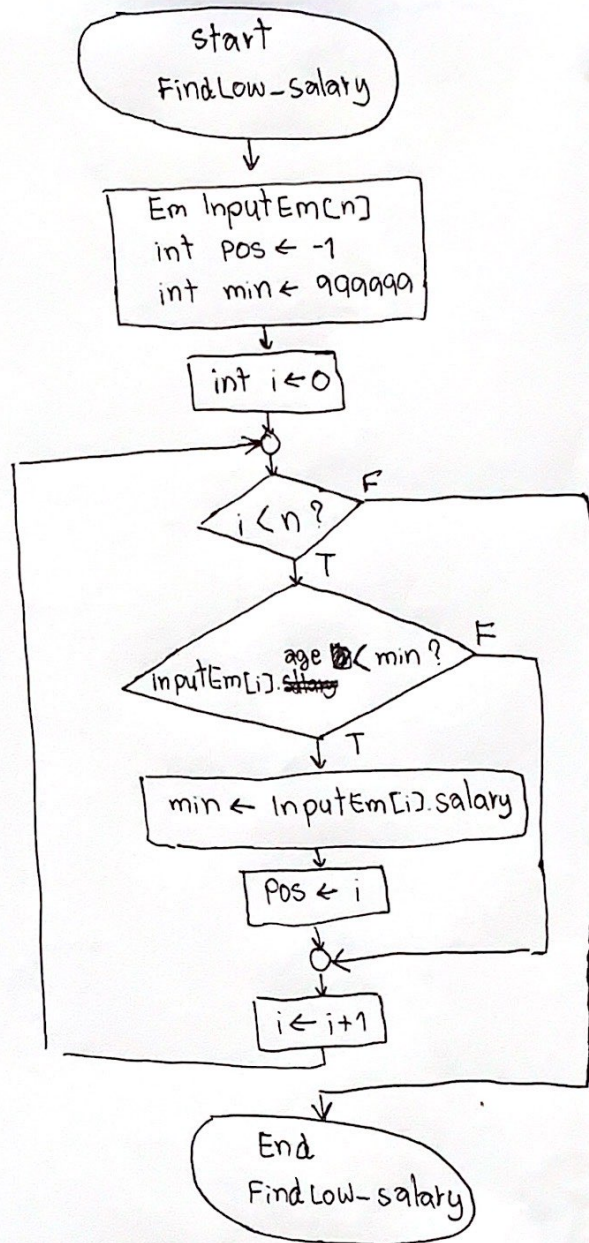 start
FindLow-salary
Em InputEm[n]
int pos ← -1
int min ← 999999
int i ← 0
i < n ?
F
T
age < min ?
InputEm[i].
F
T
min ← InputEm[i].salary
Pos ← i
i ← i+1
End
FindLow-salary